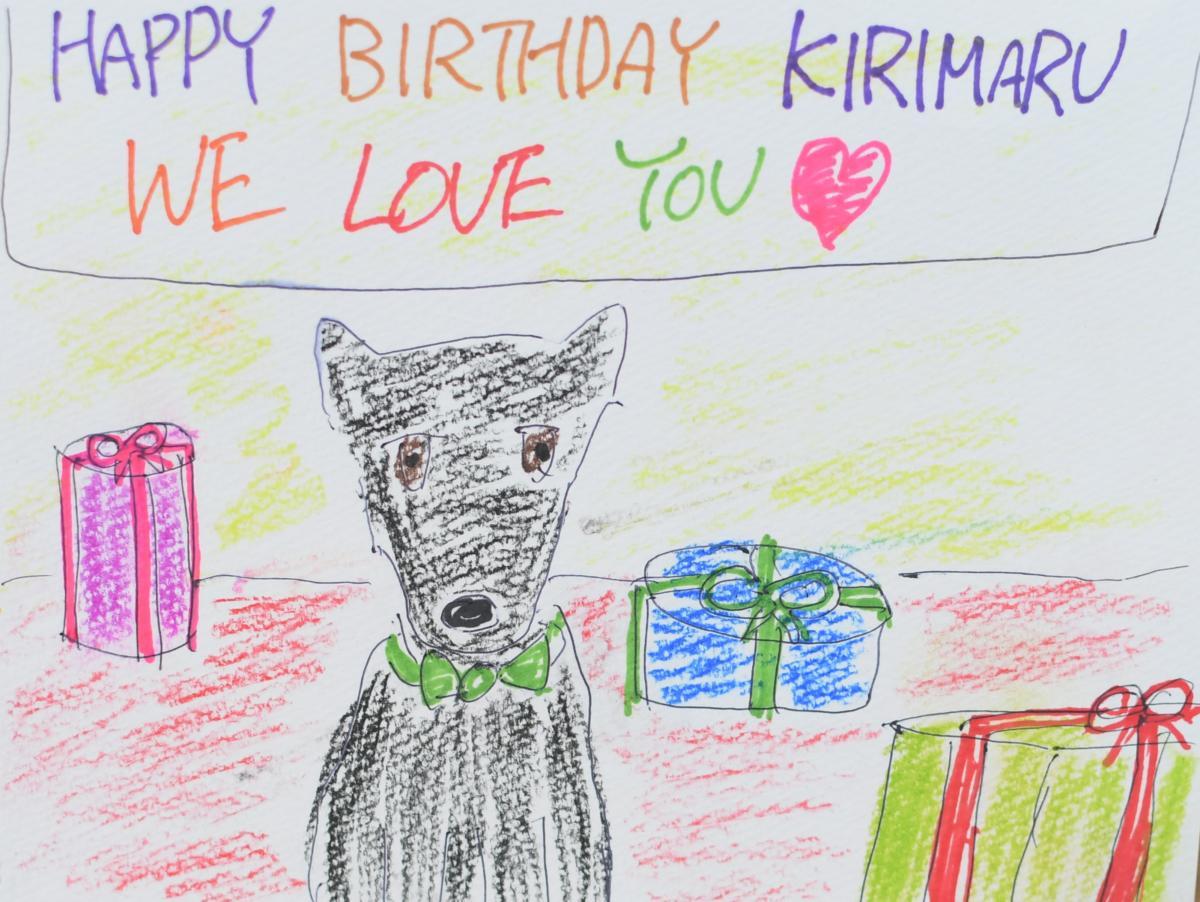 HAPPY BIRTHDAY KIRIMARU
WE LOVE YOU